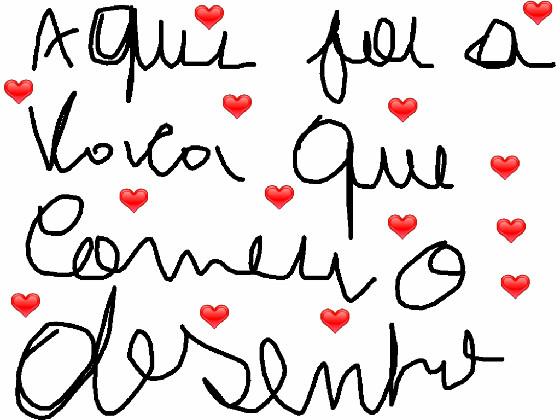 Aqui foi a
Vaca que
Comeu o
desenho